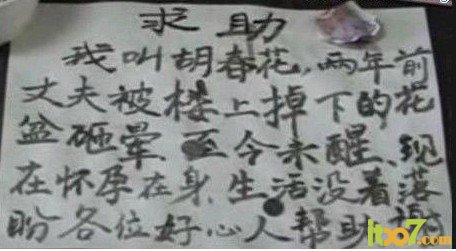 求助
我叫胡春花,两年前
丈夫被楼上掉下的花
盆砸晕.至今未醒、现
在怀孕在身.生活没着落
盼各位好心人帮助
itoo7.com